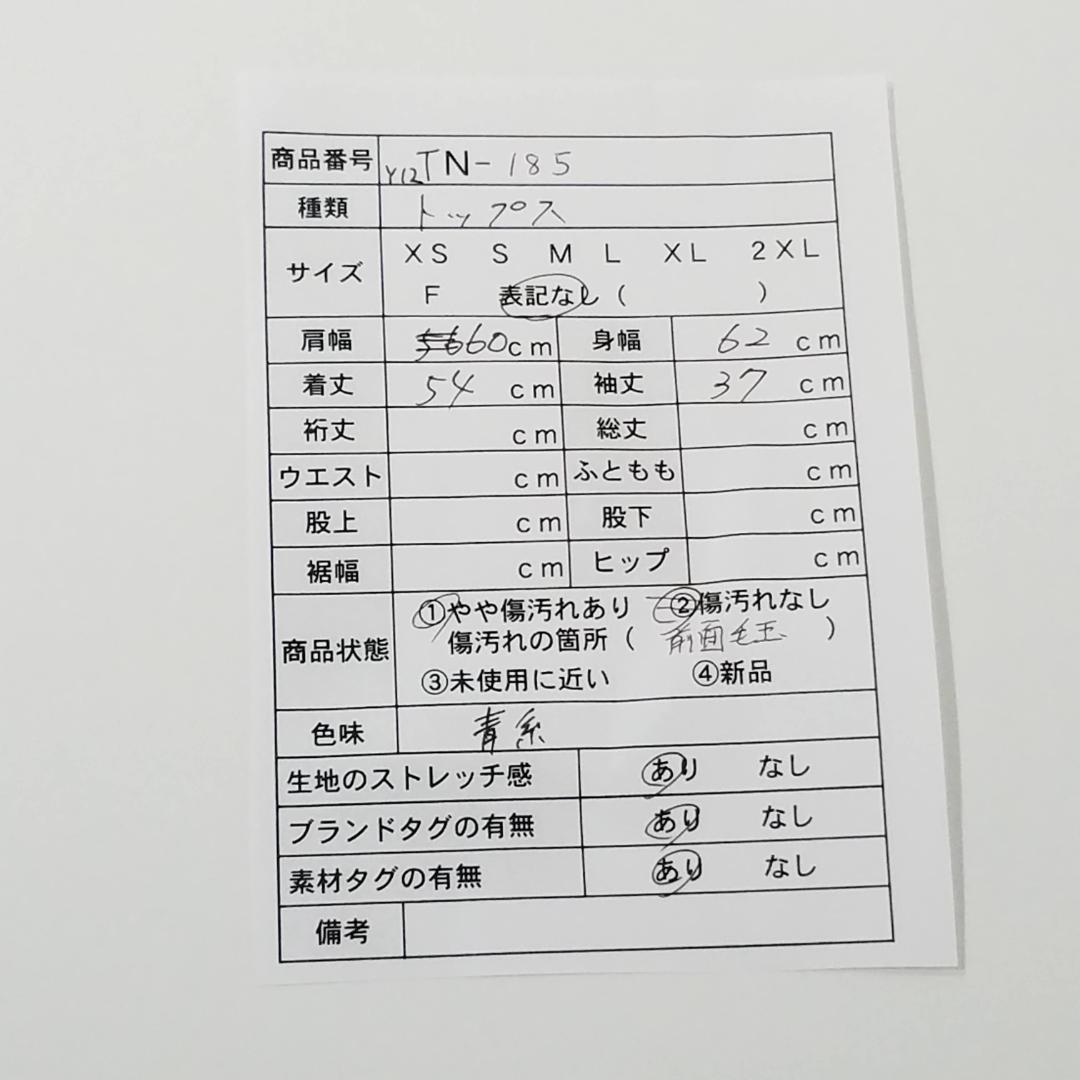 商品番号 Y12TN-185
種類 トップス
サイズ XS S M L XL 2XL
F 表記なし ( )
肩幅 60cm 身幅 62 cm
着丈 54 cm 袖丈 37 cm
裄丈 cm 総丈 cm
ウエスト cm ふともも cm
股上 cm 股下 cm
裾幅 cm ヒップ cm
商品状態 ①やや傷汚れあり ②傷汚れなし
傷汚れの箇所 ( 前面毛玉 )
③未使用に近い ④新品
色味 青系
生地のストレッチ感 あり なし
ブランドタグの有無 あり なし
素材タグの有無 あり なし
備考